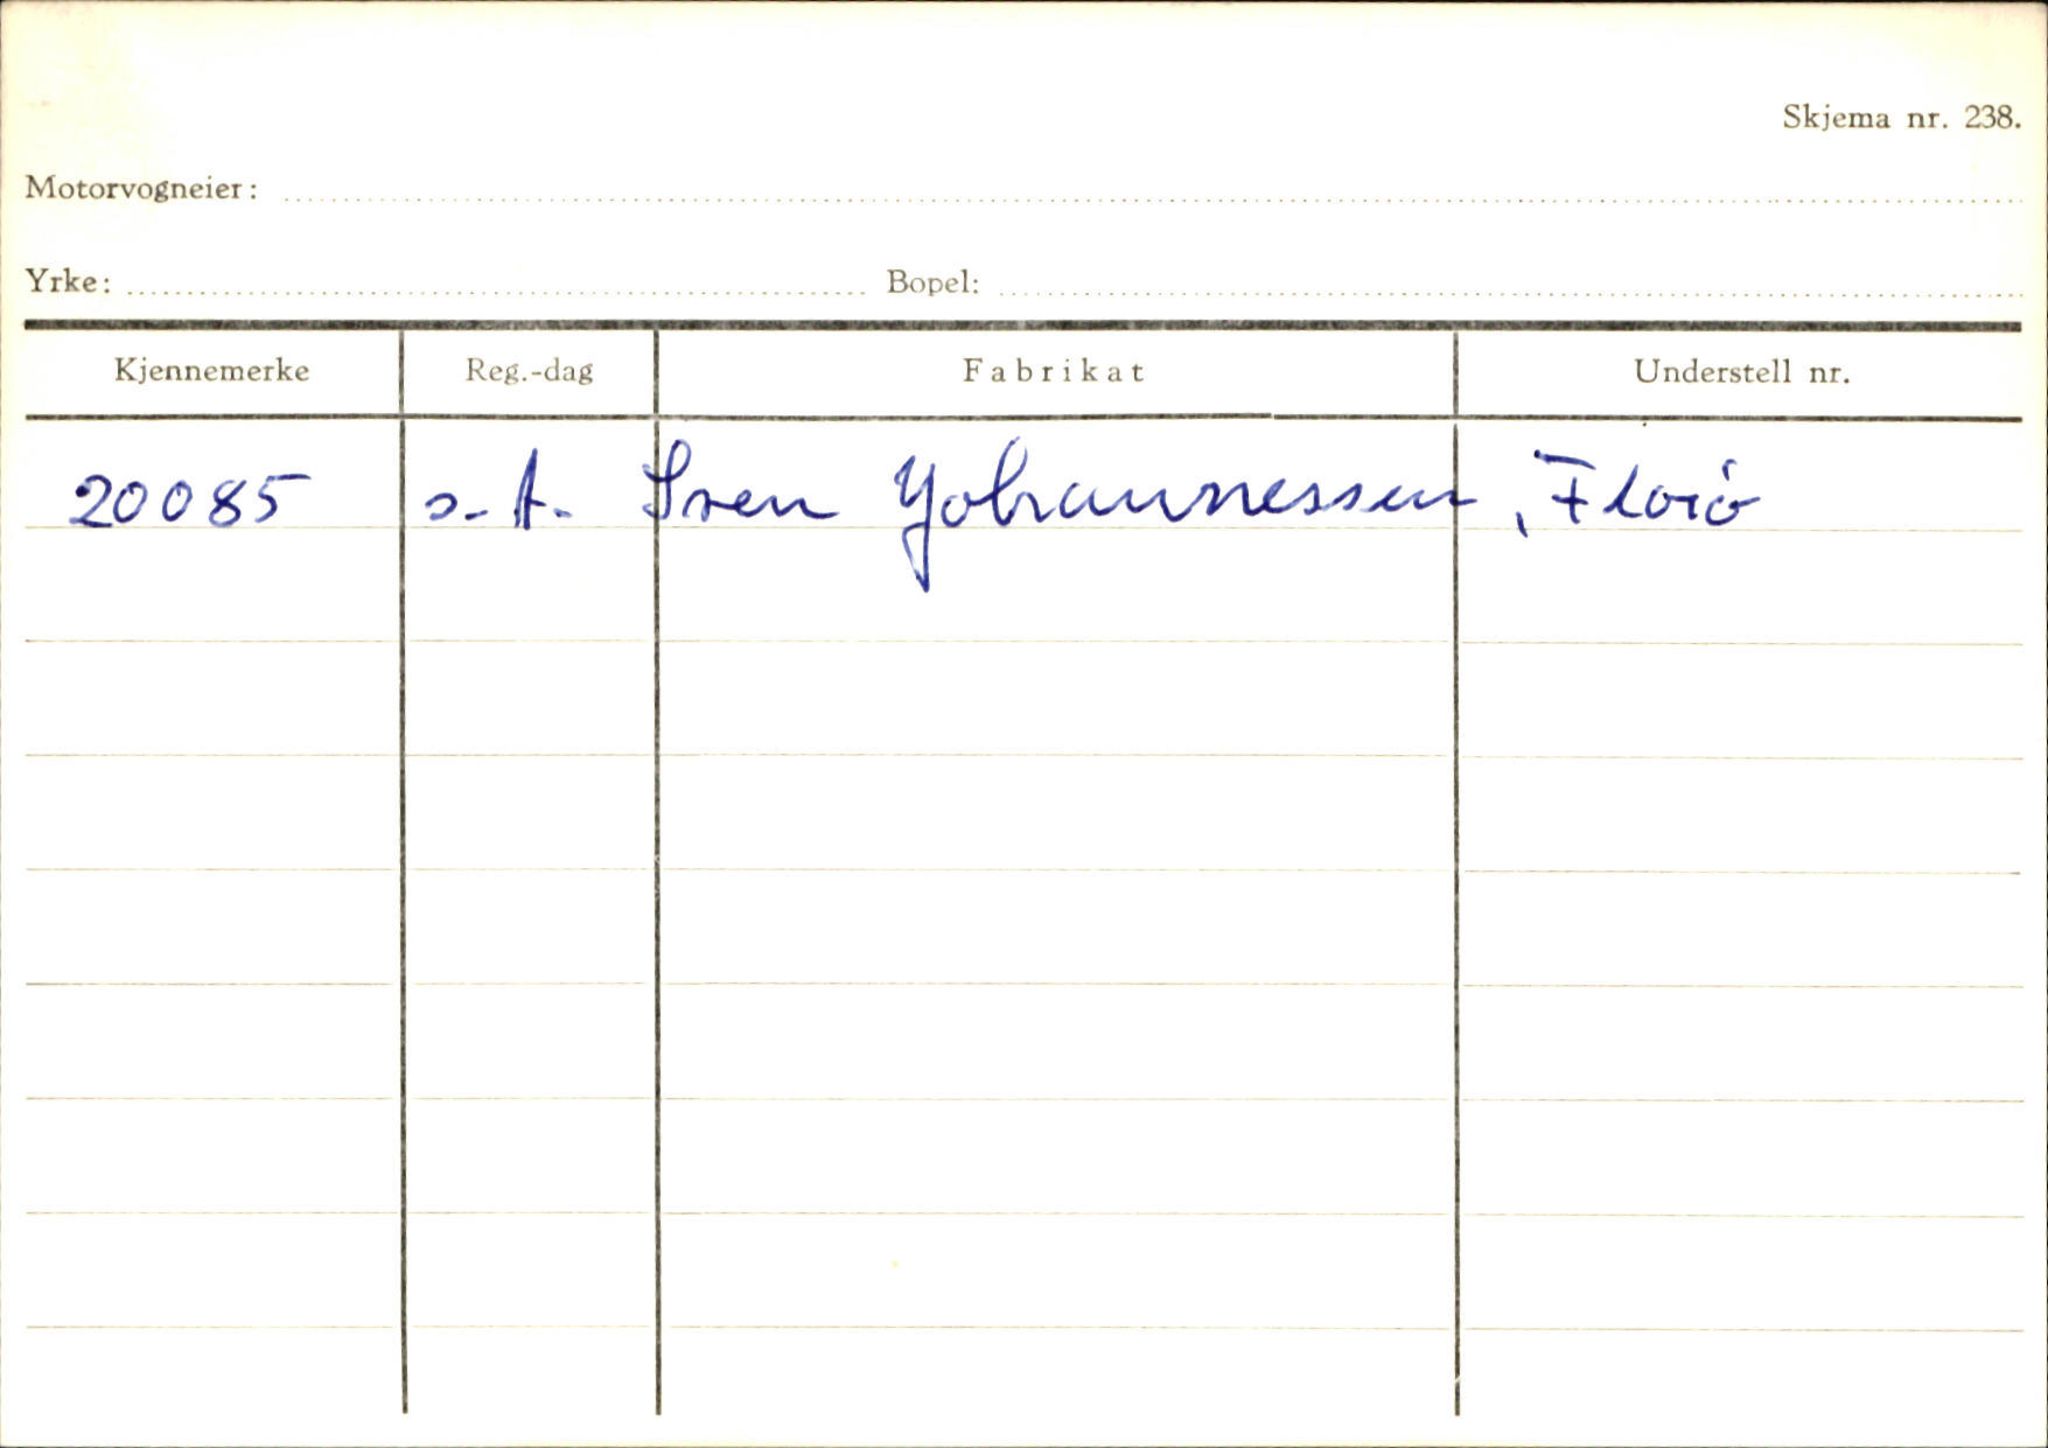 Skjema nr. 238.
Motorvogneier:
Yrke: Bopel:
Kjennemerke Reg.-dag Fabrikat Understell nr.
20085 s. A. Sven Johannessen, Florø